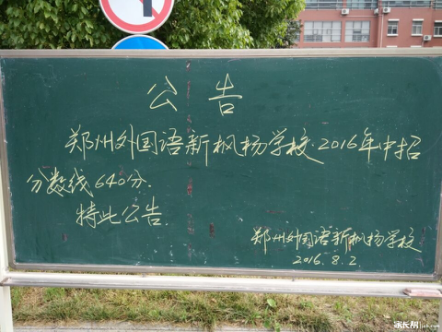 公告
郑州外国语新枫杨学校2016年中招
分数线640分.
特此公告
郑州外国语新枫杨学校
2016.8.2
家长帮